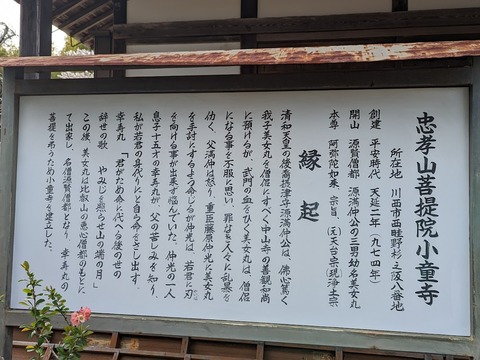 忠孝山菩提院小童寺
所在地 川西市西畦野杉之阪八番地
創建 平安時代 天延二年（九七四年）
開山 源賢僧都 源満仲公の三男幼名美女丸
本尊 阿弥陀如来 宗旨（元）天台宗（現）浄土宗
縁起
清和天皇の後裔摂津守源満仲公は、佛心篤く
我子美女丸を僧侶にすべく中山寺の善観和尚
に預けるが、武門の血をひく美女丸は、僧侶
になる事を不服に思い、罪なき人々に乱暴を
働く、父満仲は怒り、重臣藤原仲光に美女丸
を手討にするよう命じるが仲光は、若君に刃
を向ける事が出来ず悩んでいた、仲光の一人
息子十五才の幸寿丸が、父の苦しみを知り、
私が若君の身代りにと自ら命をさし出す、
幸寿丸「君がため命に代へる後の世の
辞世の歌 やみじを照らせ山の端の月」
この後、美女丸は比叡山の恵心僧都のもとに
て出家し、名僧源賢僧都となり 幸寿丸の
菩提を弔うため小童寺を建立した。